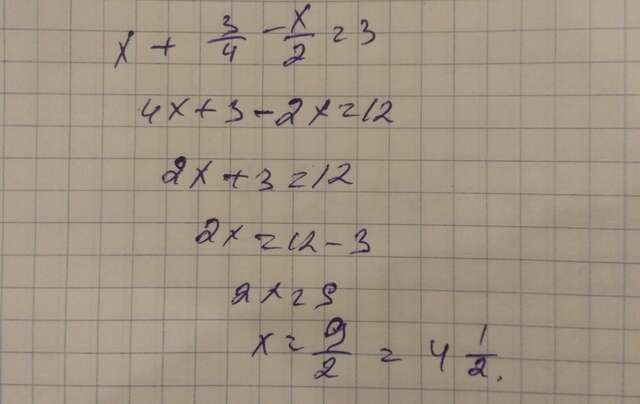 x + 3/4 - x/2 = 3
4x + 3 - 2x = 12
2x + 3 = 12
2x = 12 - 3
2x = 9
x = 9/2 = 4 1/2.